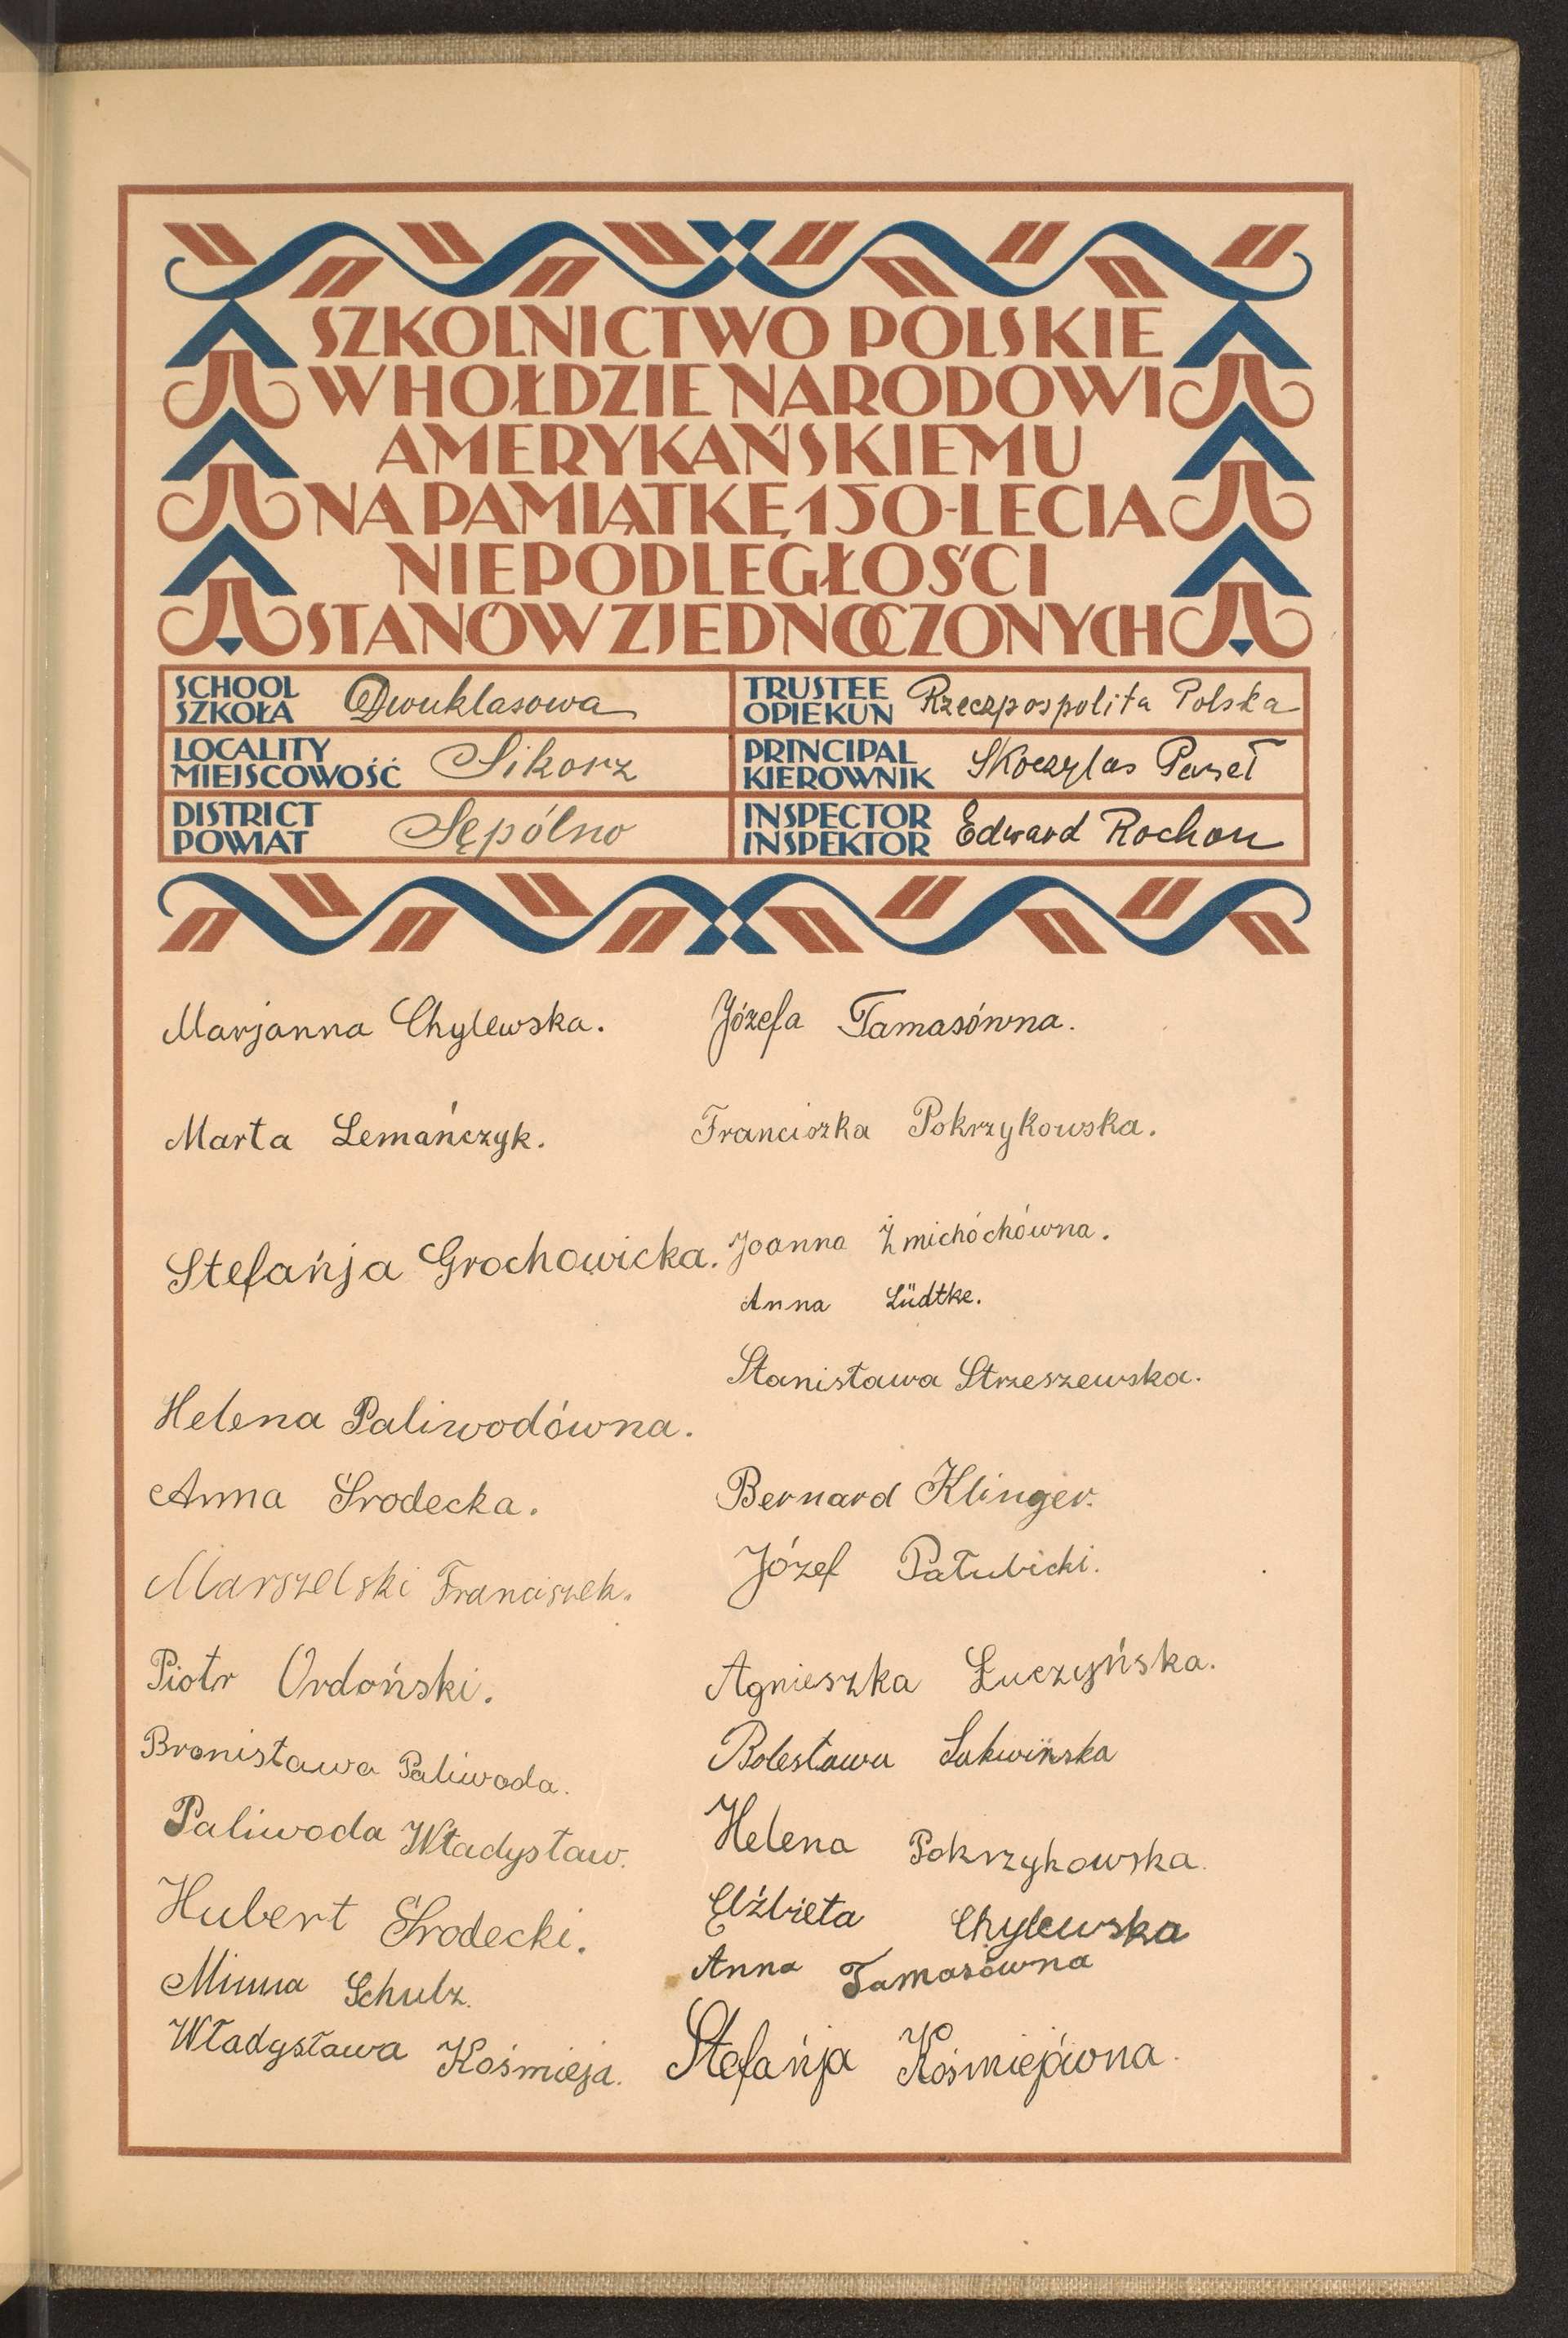 SZKOLNICTWO POLSKIE
W HOŁDZIE NARODOWI
AMERYKAŃSKIEMU
NA PAMIĄTKĘ 150-LECIA
NIEPODLEGŁOŚCI
STANÓW ZJEDNOCZONYCH
SCHOOL
SZKOŁA
Dwuklasowa
TRUSTEE
OPIEKUN
Rzeczpospolita Polska
LOCALITY
MIEJSCOWOŚĆ
Sikorz
PRINCIPAL
KIEROWNIK
Skoczylas Paweł
DISTRICT
POWIAT
Sępólno
INSPECTOR
INSPEKTOR
Edward Rochon
Marjanna Chylewska.
Marta Lemańczyk.
Stefańja Grochowicka.
Helena Paliwodówna.
Anna Środecka.
Marszelski Franciszek.
Piotr Ordoński.
Bronisława Paliwoda.
Paliwoda Władysław.
Hubert Środecki.
Minna Schulz.
Władysława Kośmieja.
Józefa Tamasówna.
Franciszka Pokrzykowska.
Joanna Żmichóchówna.
Anna Lüdtke.
Stanisława Strzeszewska.
Bernard Klinger.
Józef Pałubicki.
Agnieszka Łuczyńska.
Bolesława Lakwińska
Helena Pokrzykowska.
Elżbieta Chylewska
Anna Tamasówna
Stefańja Kośmiejówna.